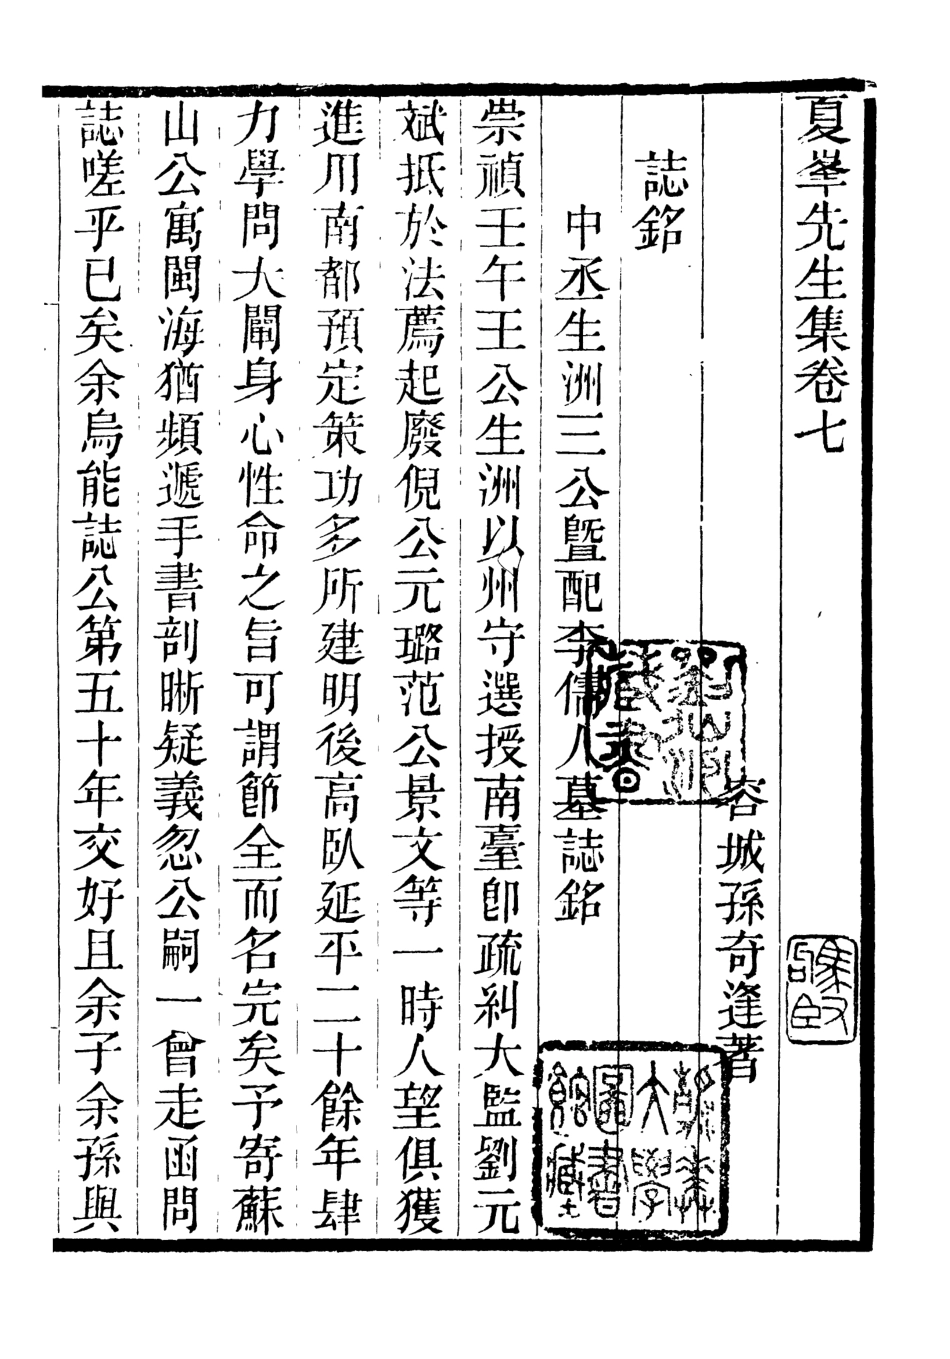 夏峯先生集卷七
容城孫奇逢著
誌銘
中丞生洲王公暨配李儒人墓誌銘
崇禎壬午王公生洲以州守選授南臺卽疏糾大監劉元
斌抵於法薦起廢倪公元璐范公景文等一時人望俱獲
進用南都預定策功多所建明後高臥延平二十餘年肆
力學問大闡身心性命之旨可謂節全而名完矣予寄蘇
山公寓閩海猶頻遞手書剖晰疑義忽公嗣一曾走函問
誌嗟乎已矣余烏能誌公第五十年交好且余子余孫與
大學
圖書
館藏